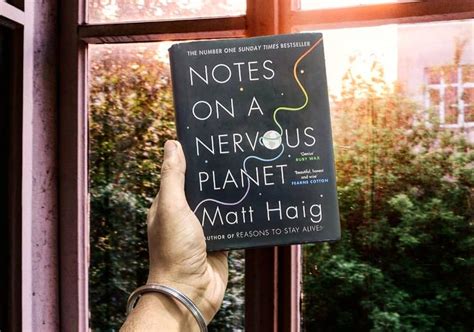 THE NUMBER ONE SUNDAY TIMES BESTSELLER
NOTES
ON A
NERVOUS
PLANET
'Genius'
RUBY WAX
'Beautiful, honest
and wise'
FEARNE COTTON
Matt Haig
AUTHOR OF REASONS TO STAY ALIVE